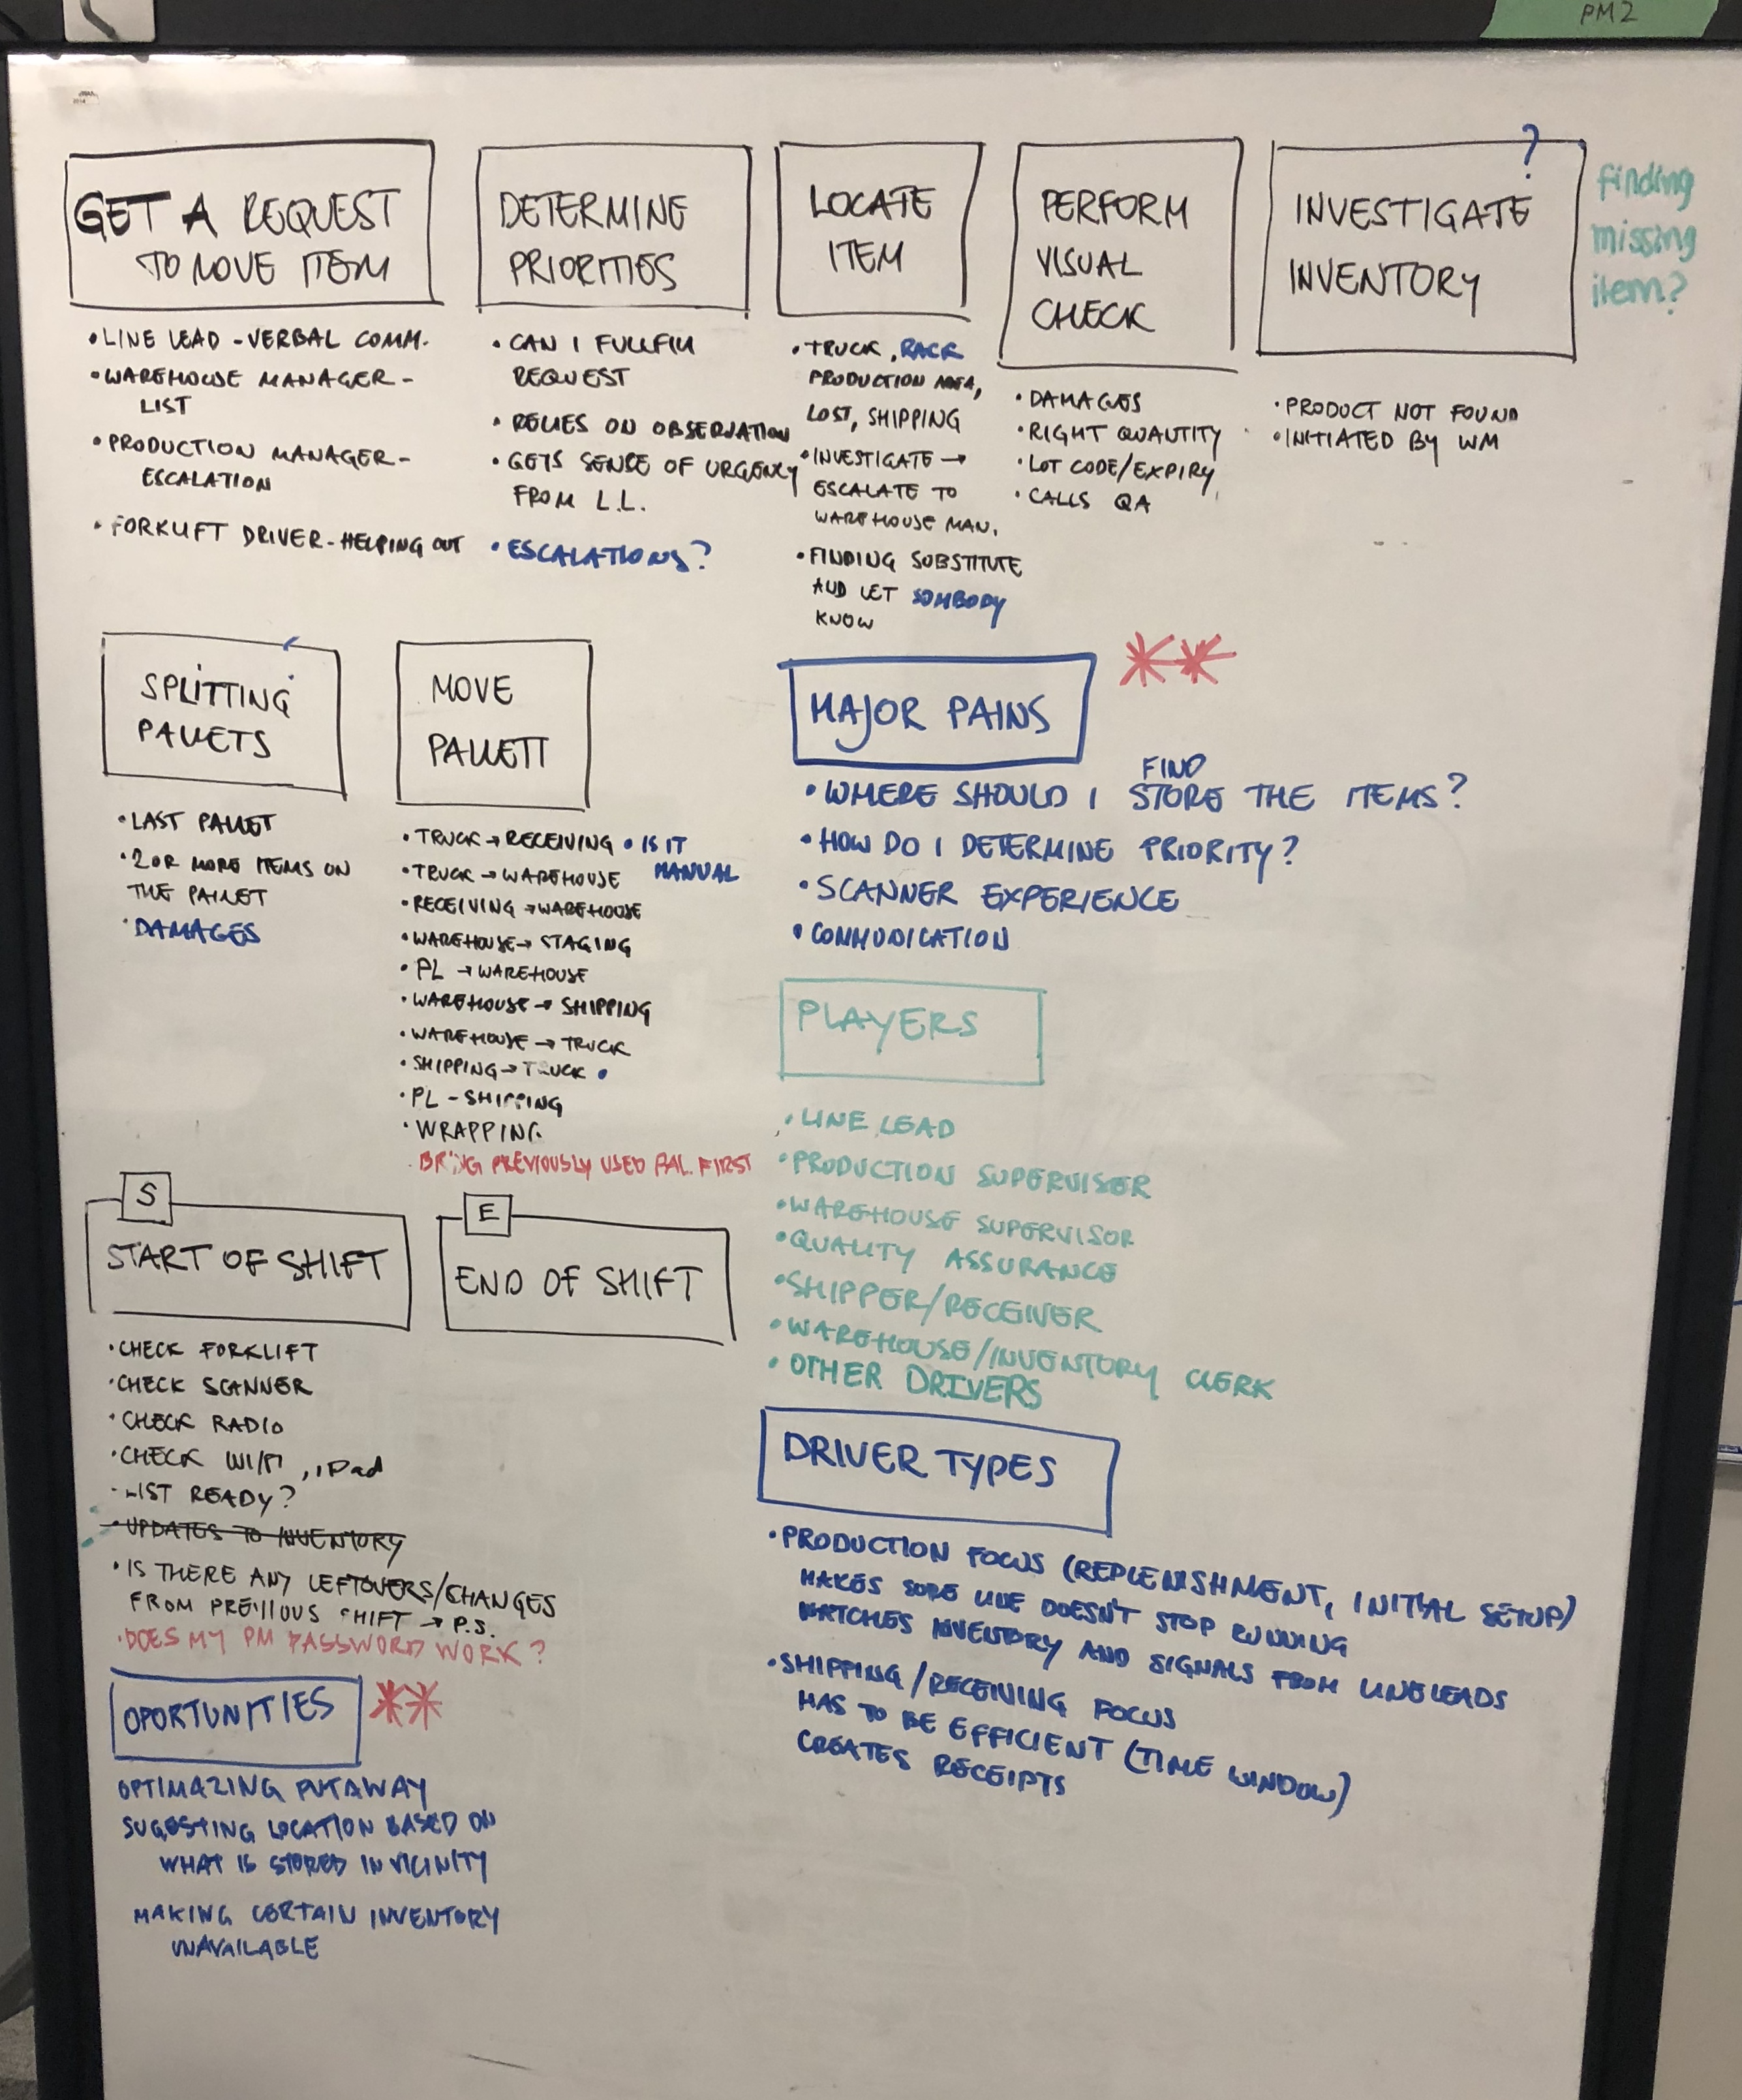 PM2
GET A REQUEST
TO MOVE ITEM
• LINE LEAD - VERBAL COMM.
• WAREHOUSE MANAGER -
LIST
• PRODUCTION MANAGER -
ESCALATION
• FORKLIFT DRIVER - HELPING OUT
DETERMINE
PRIORITIES
• CAN I FULLFILL
REQUEST
• RELIES ON OBSERVATION
• GETS SENSE OF URGENCY
FROM L.L.
• ESCALATIONS?
LOCATE
ITEM
• TRUCK, RACK
PRODUCTION AREA,
LOST, SHIPPING
• INVESTIGATE →
ESCALATE TO
WAREHOUSE MAN.
• FINDING SUBSTITUTE
AND LET SOMBODY
KNOW
PERFORM
VISUAL
CHECK
• DAMAGES
• RIGHT QUANTITY
• LOT CODE/EXPIRY
• CALLS QA
?
INVESTIGATE
INVENTORY
• PRODUCT NOT FOUND
• INITIATED BY WM
finding
missing
item?
SPLITTING
PALLETS
• LAST PALLET
• 2 OR MORE ITEMS ON
THE PALLET
• DAMAGES
MOVE
PALLETT
• TRUCK → RECEIVING • IS IT
MANUAL
• TRUCK → WAREHOUSE
• RECEIVING → WAREHOUSE
• WAREHOUSE → STAGING
• PL → WAREHOUSE
• WAREHOUSE → SHIPPING
• WAREHOUSE → TRUCK
• SHIPPING → TRUCK •
• PL - SHIPPING
• WRAPPING
• BRING PREVIOUSLY USED PAL. FIRST
MAJOR PAINS **
FIND
• WHERE SHOULD I STORE THE ITEMS?
• HOW DO I DETERMINE PRIORITY?
• SCANNER EXPERIENCE
• COMMUNICATION
PLAYERS
• LINE LEAD
• PRODUCTION SUPERVISER
• WAREHOUSE SUPERVISOR
• QUALITY ASSURANCE
• SHIPPER/RECEIVER
• WAREHOUSE/INVENTORY CLERK
• OTHER DRIVERS
S
START OF SHIFT
• CHECK FORKLIFT
• CHECK SCANNER
• CHECK RADIO
• CHECK WIFI, iPad
• LIST READY?
• UPDATES TO INVENTORY
• IS THERE ANY LEFTOVERS/CHANGES
FROM PREVIOUS SHIFT → P.S.
• DOES MY PM PASSWORD WORK?
E
END OF SHIFT
DRIVER TYPES
• PRODUCTION FOCUS (REPLENISHMENT, INITIAL SETUP)
MAKES SURE LINE DOESN'T STOP RUNNING
WATCHES INVENTORY AND SIGNALS FROM LINE LEADS
• SHIPPING/RECEIVING FOCUS
HAS TO BE EFFICIENT (TIME WINDOW)
CREATES RECEIPTS
OPORTUNITIES **
OPTIMAZING PUTAWAY
SUGESTING LOCATION BASED ON
WHAT IS STORED IN VICINITY
MAKING CERTAIN INVENTORY
UNAVAILABLE